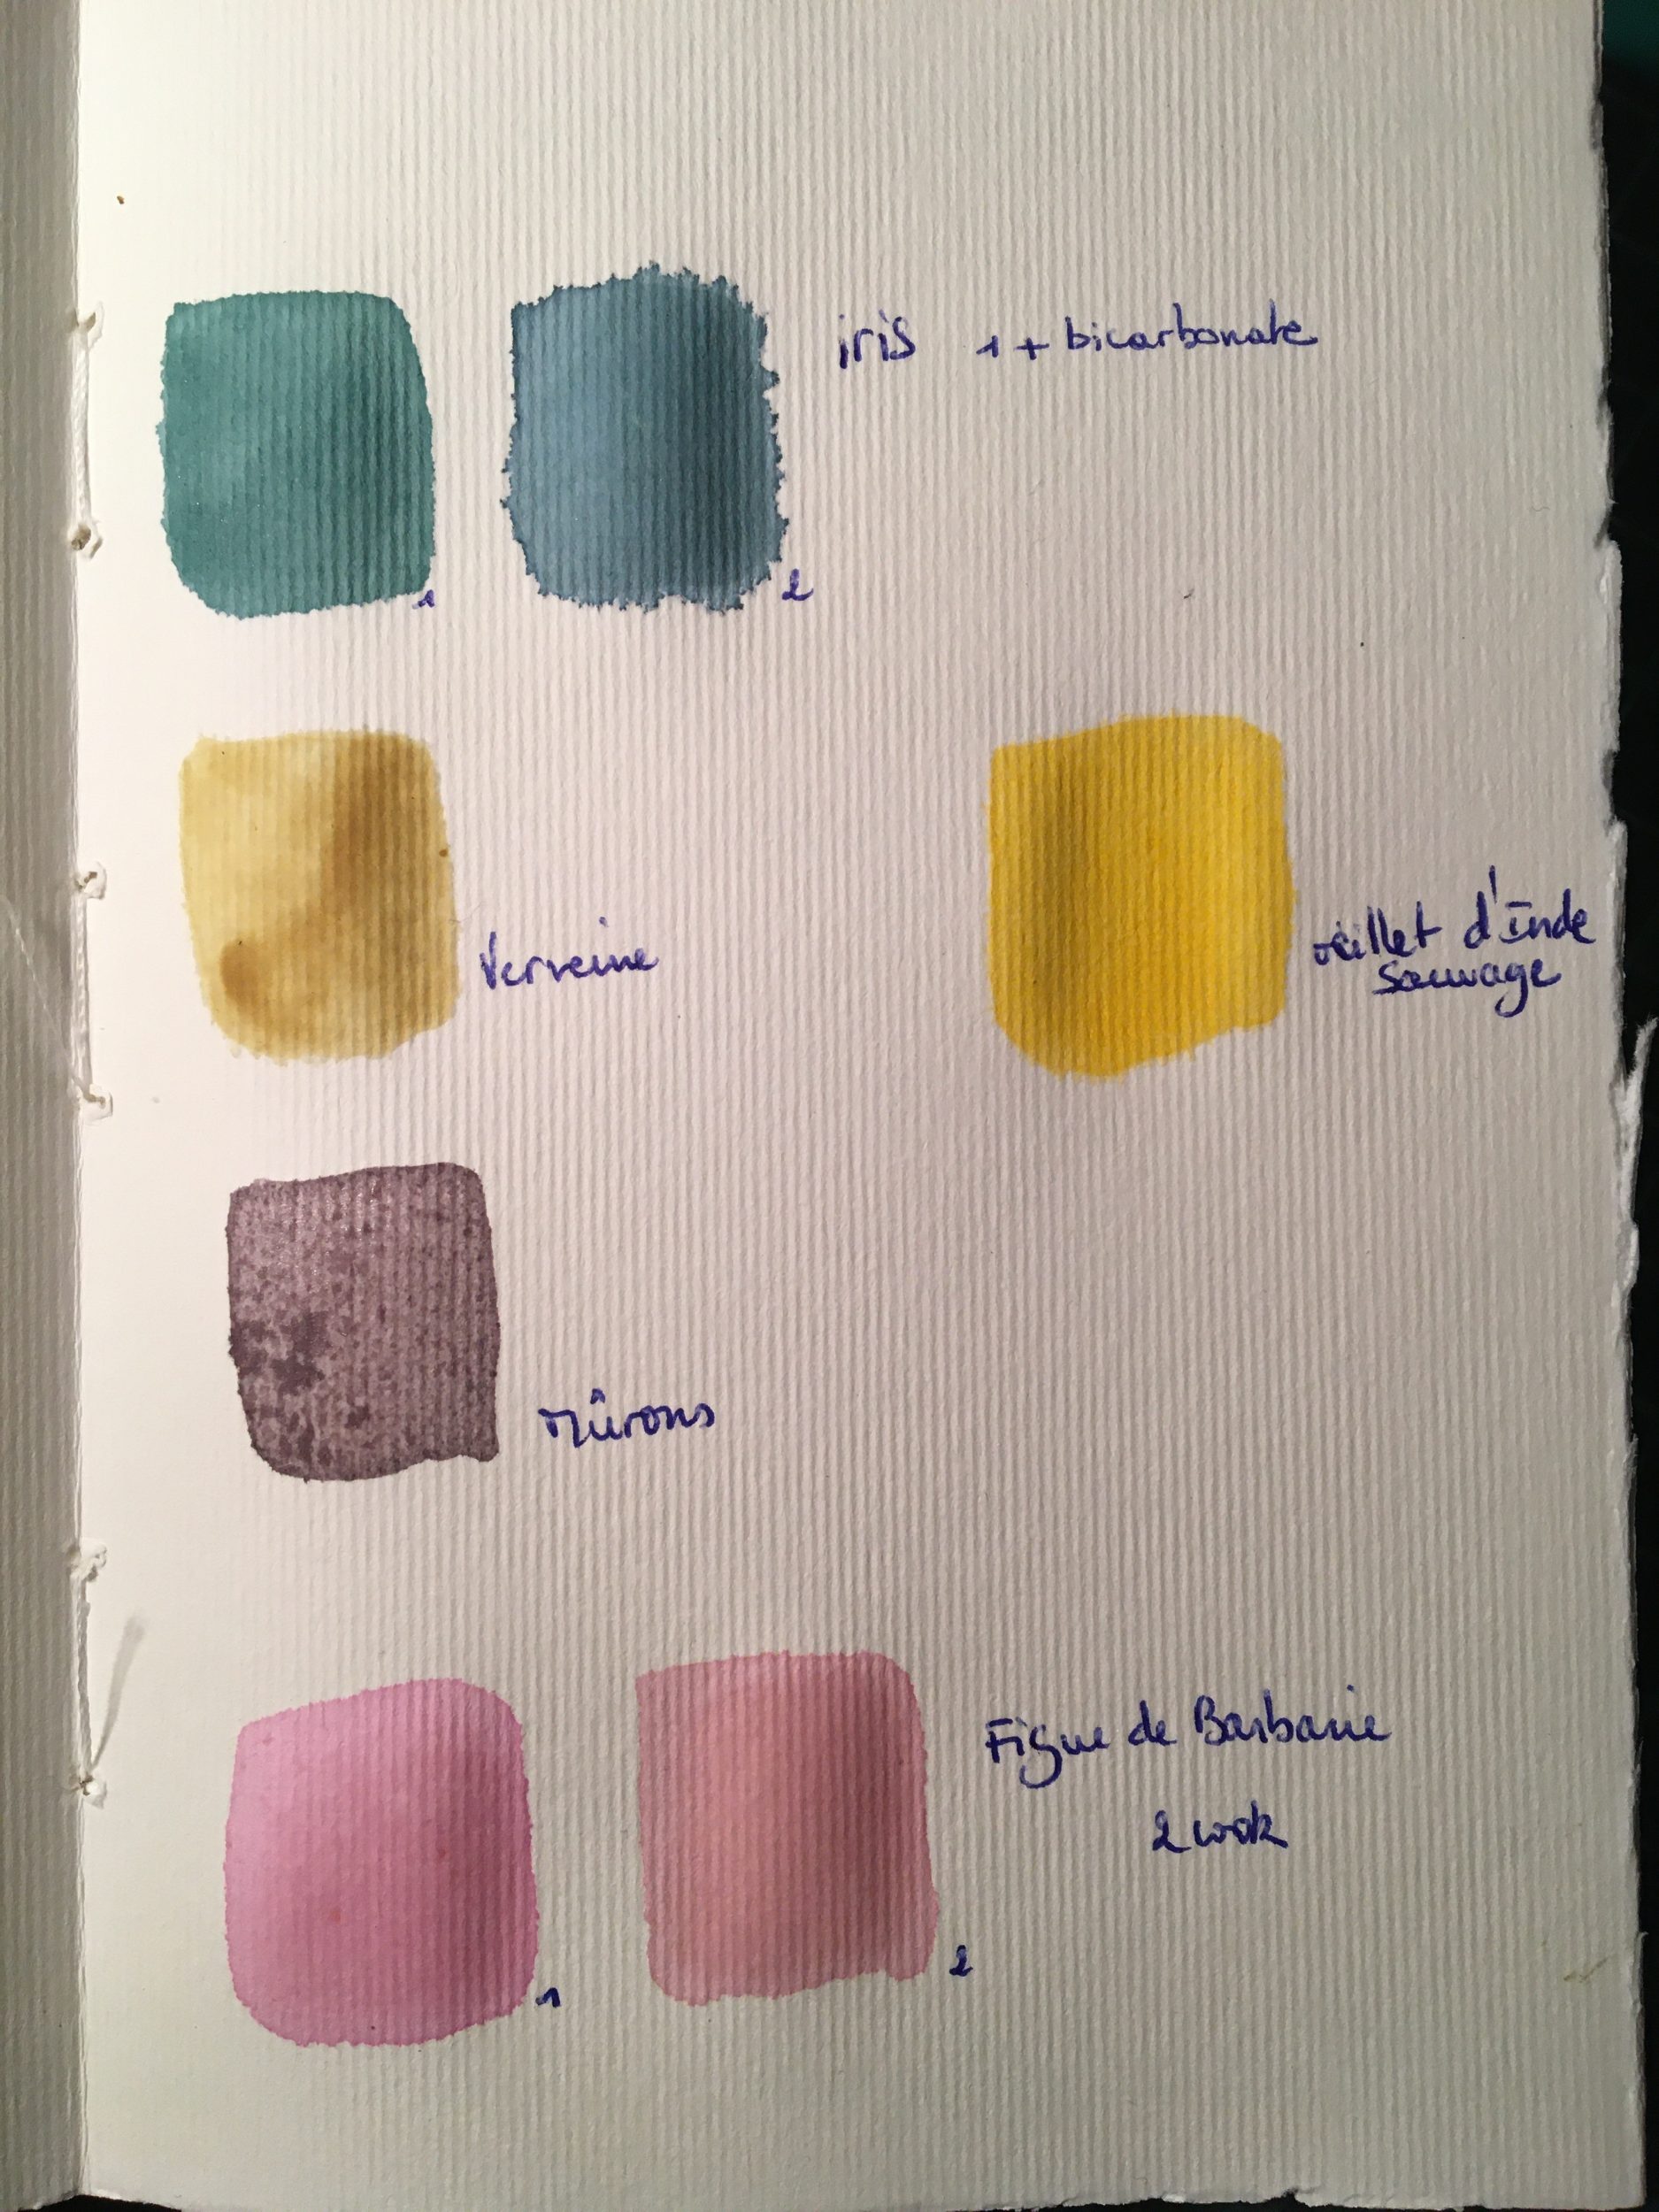 iris 1 + bicarbonate
1
2
Verveine
œillet d'Inde
sauvage
mûrons
Figue de Barbarie
2 cook
1
2